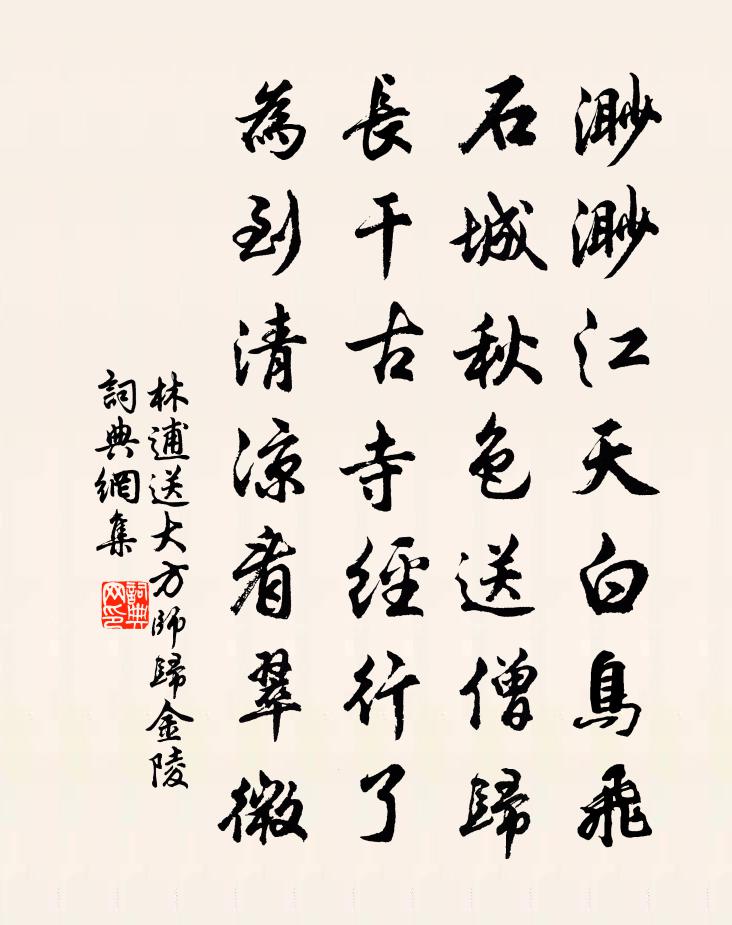 渺渺江天白鳥飛
石城秋色送僧歸
長干古寺經行了
為到清涼看翠微
林逋送大方師歸金陵
詞典網集
詞典
网印